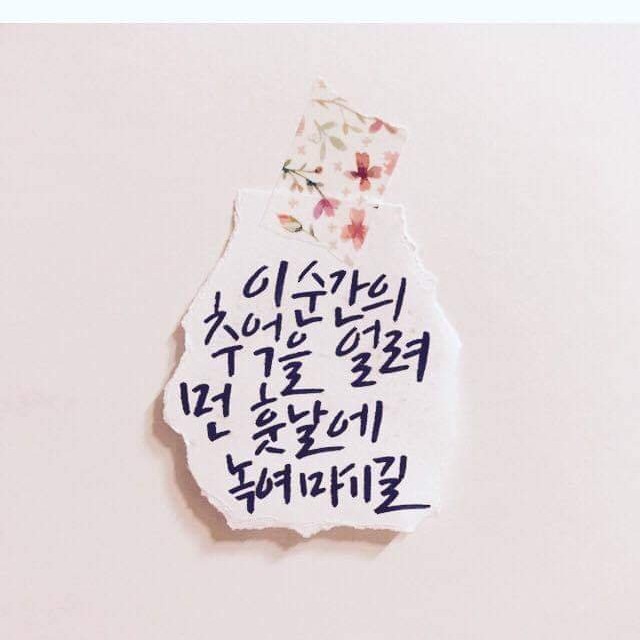 이 순간의
추억을 얼려
먼 훗날에
녹여 마시길